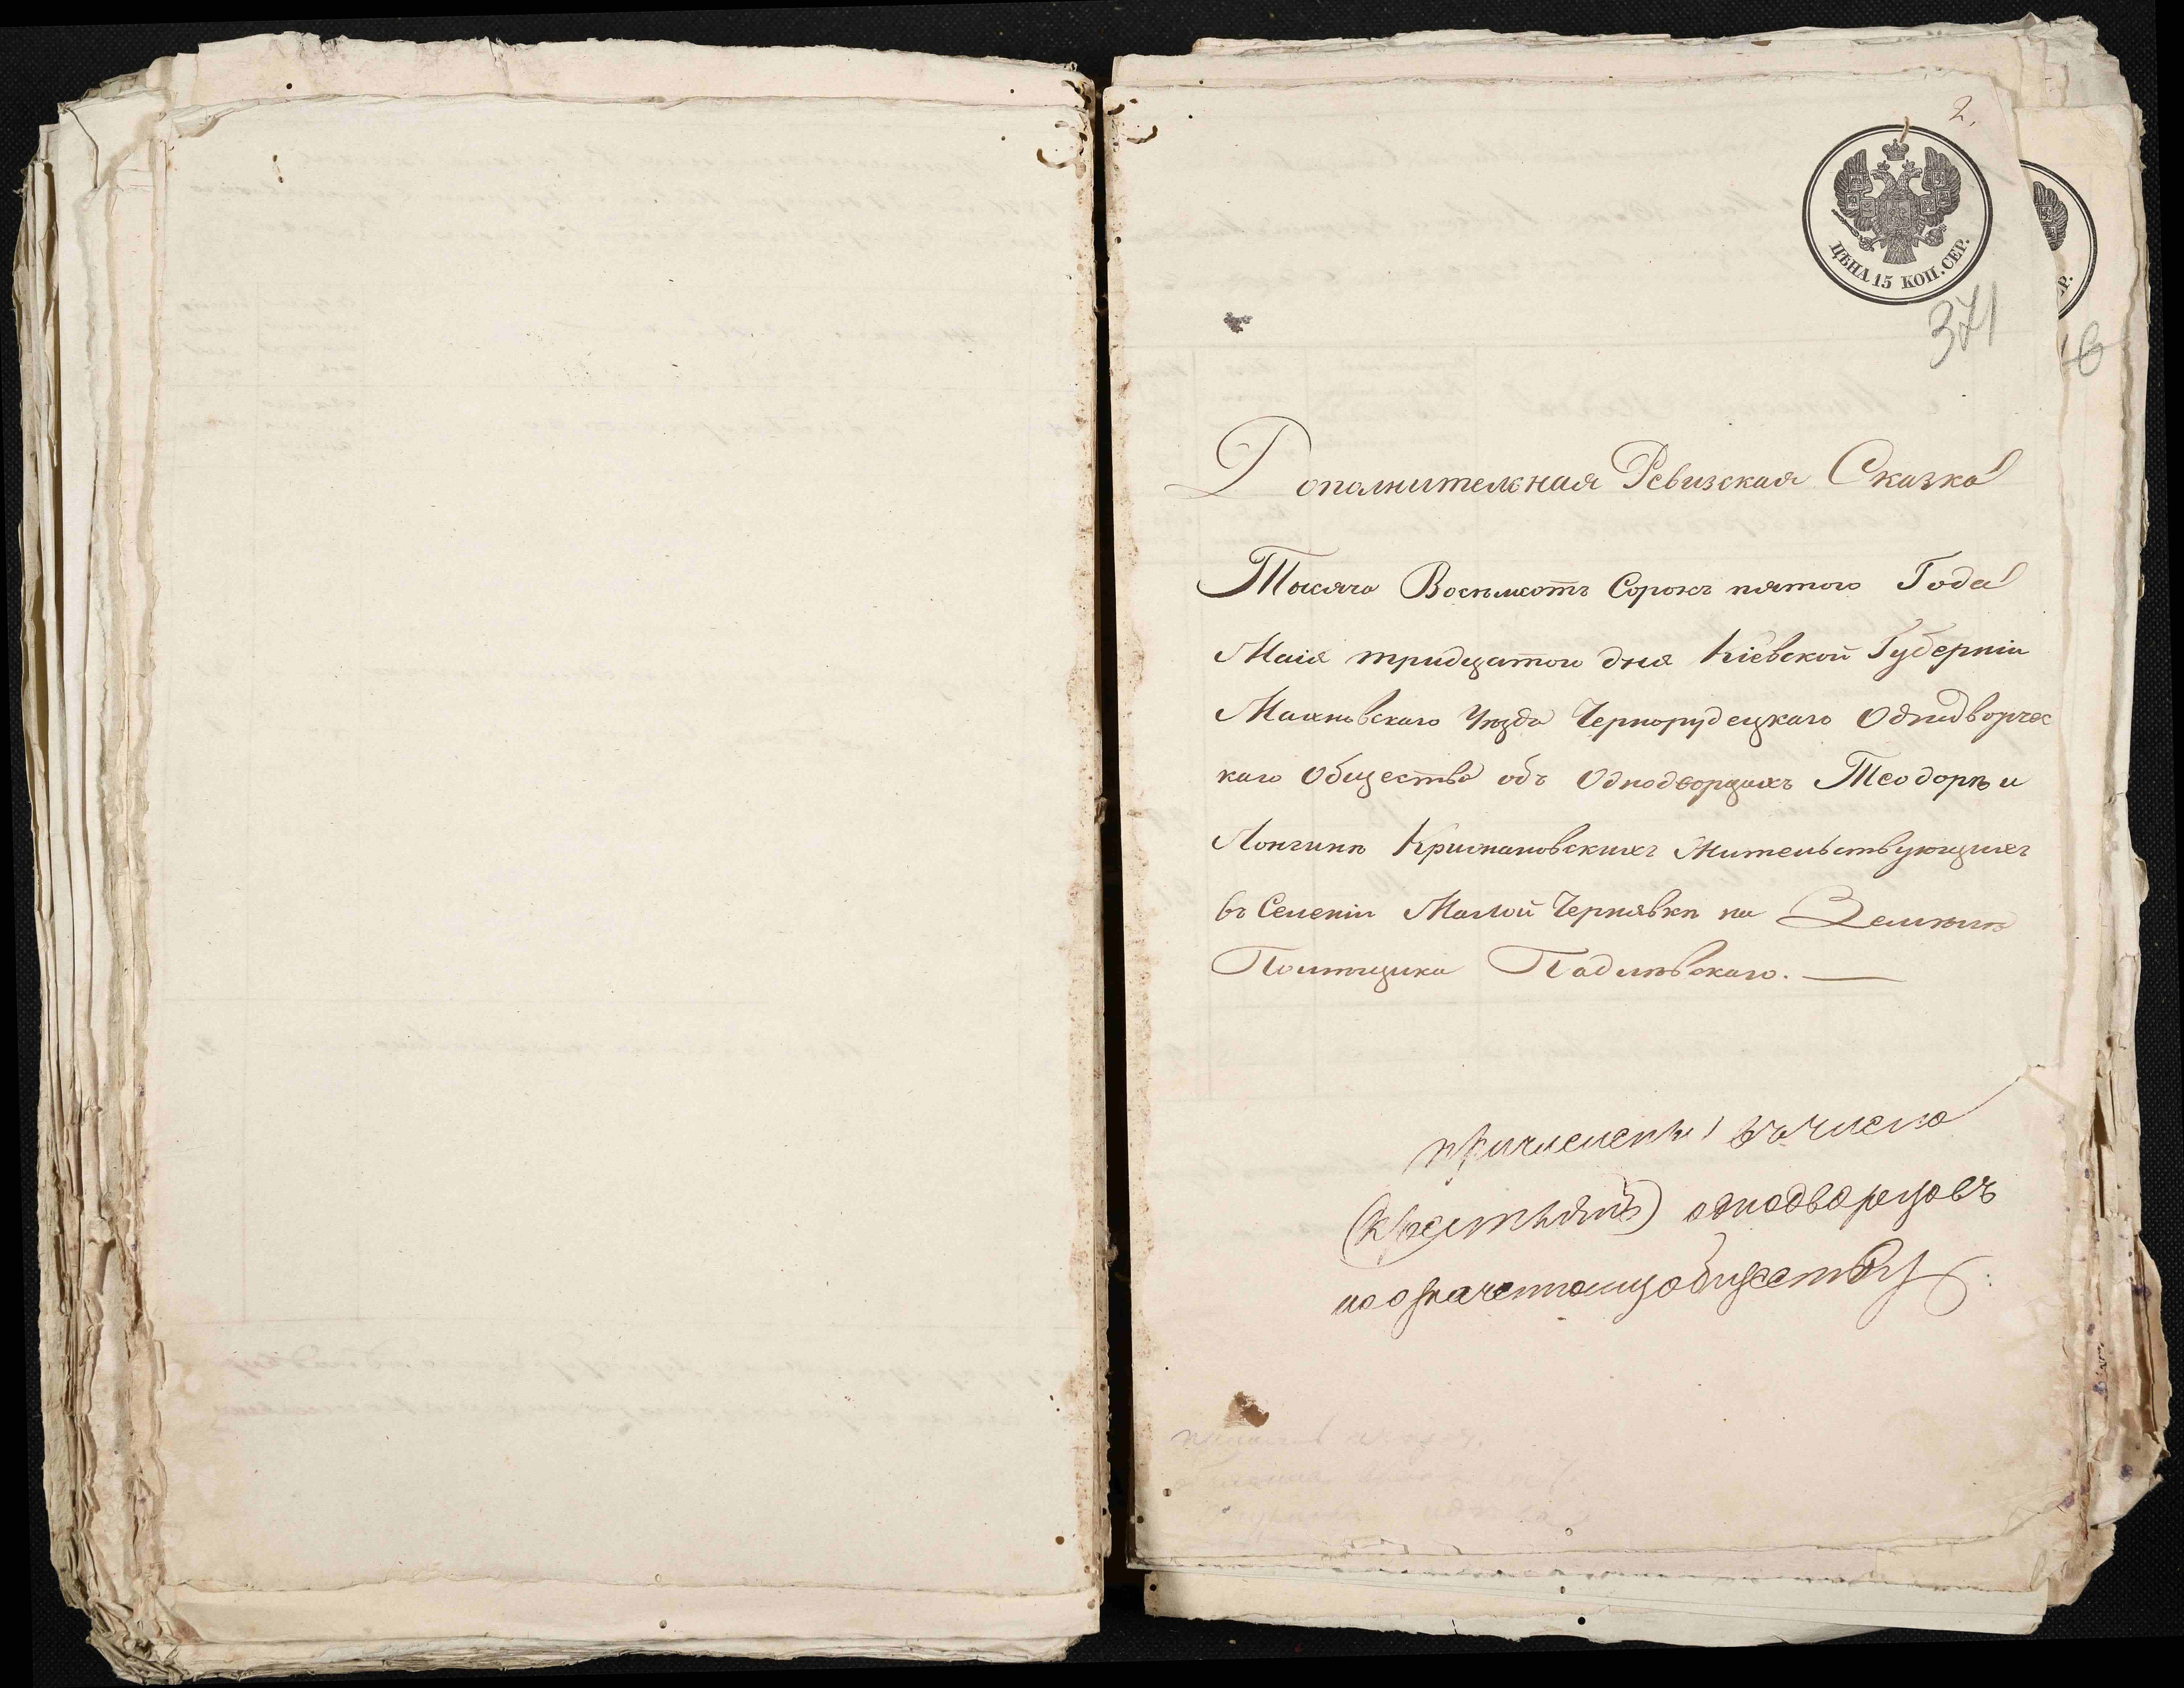 2.
ЦѢНА 15 КОП. СЕР.
371
Дополнительная Ревизская Сказка
Тысяча Восемьсотъ Сорокъ пятого Года
Маія тридцатого дня Кіевской Губерніи
Махновскаго Уѣзда Чернорудецкаго Однодворчес
каго Общества объ Однодворцахъ Теодорѣ и
Лонгинѣ Жительствующихъ
въ Селеніи Малой Чернявкѣ на Землѣ
Помѣщика Падлѣвскаго.
причислены въ число
(крестьянъ) однодворцовъ
по означенному обществу